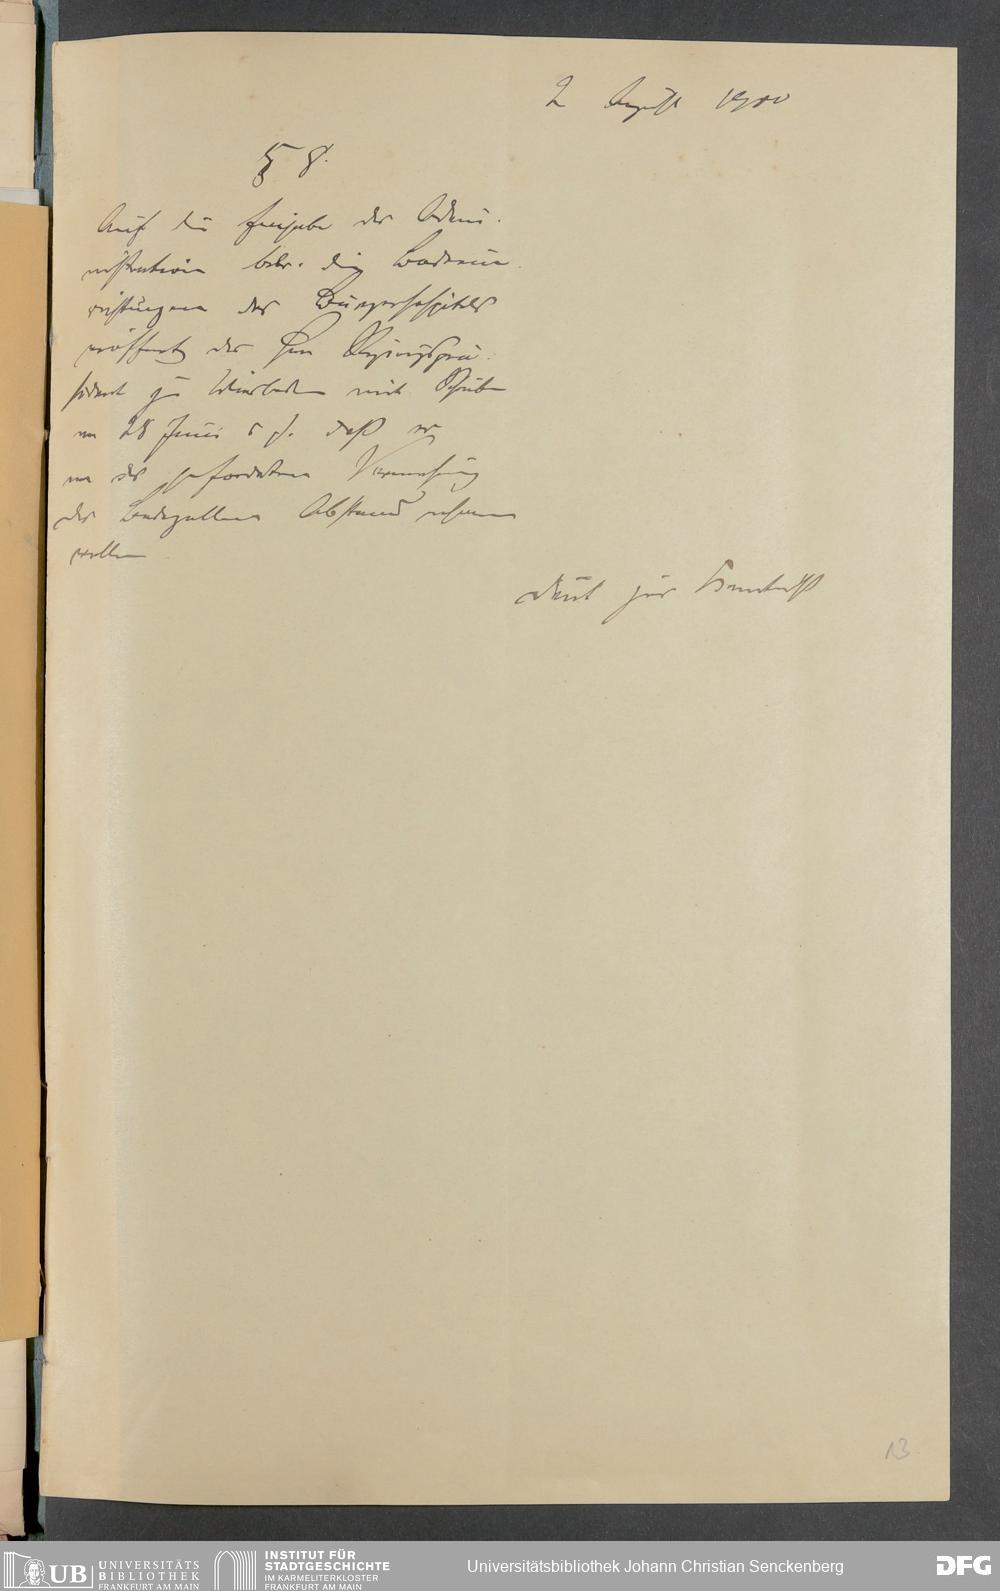 2 August 1900
§ 8.
Auf die Eingabe der Admi-
nistration betr. die Badeein-
richtungen des Bürgerhospitals
eröffnet der Herr Regierungsprä-
sident zu Wiesbaden mit Schreiben
vom 28 Juni c j. daß er
von der geforderten Vermehrung
der Badezellen Abstand nehmen
wolle
dient zur Kenntniß
13
UB UNIVERSITÄTS
BIBLIOTHEK
FRANKFURT AM MAIN
INSTITUT FÜR
STADTGESCHICHTE
IM KARMELITERKLOSTER
FRANKFURT AM MAIN
Universitätsbibliothek Johann Christian Senckenberg
DFG